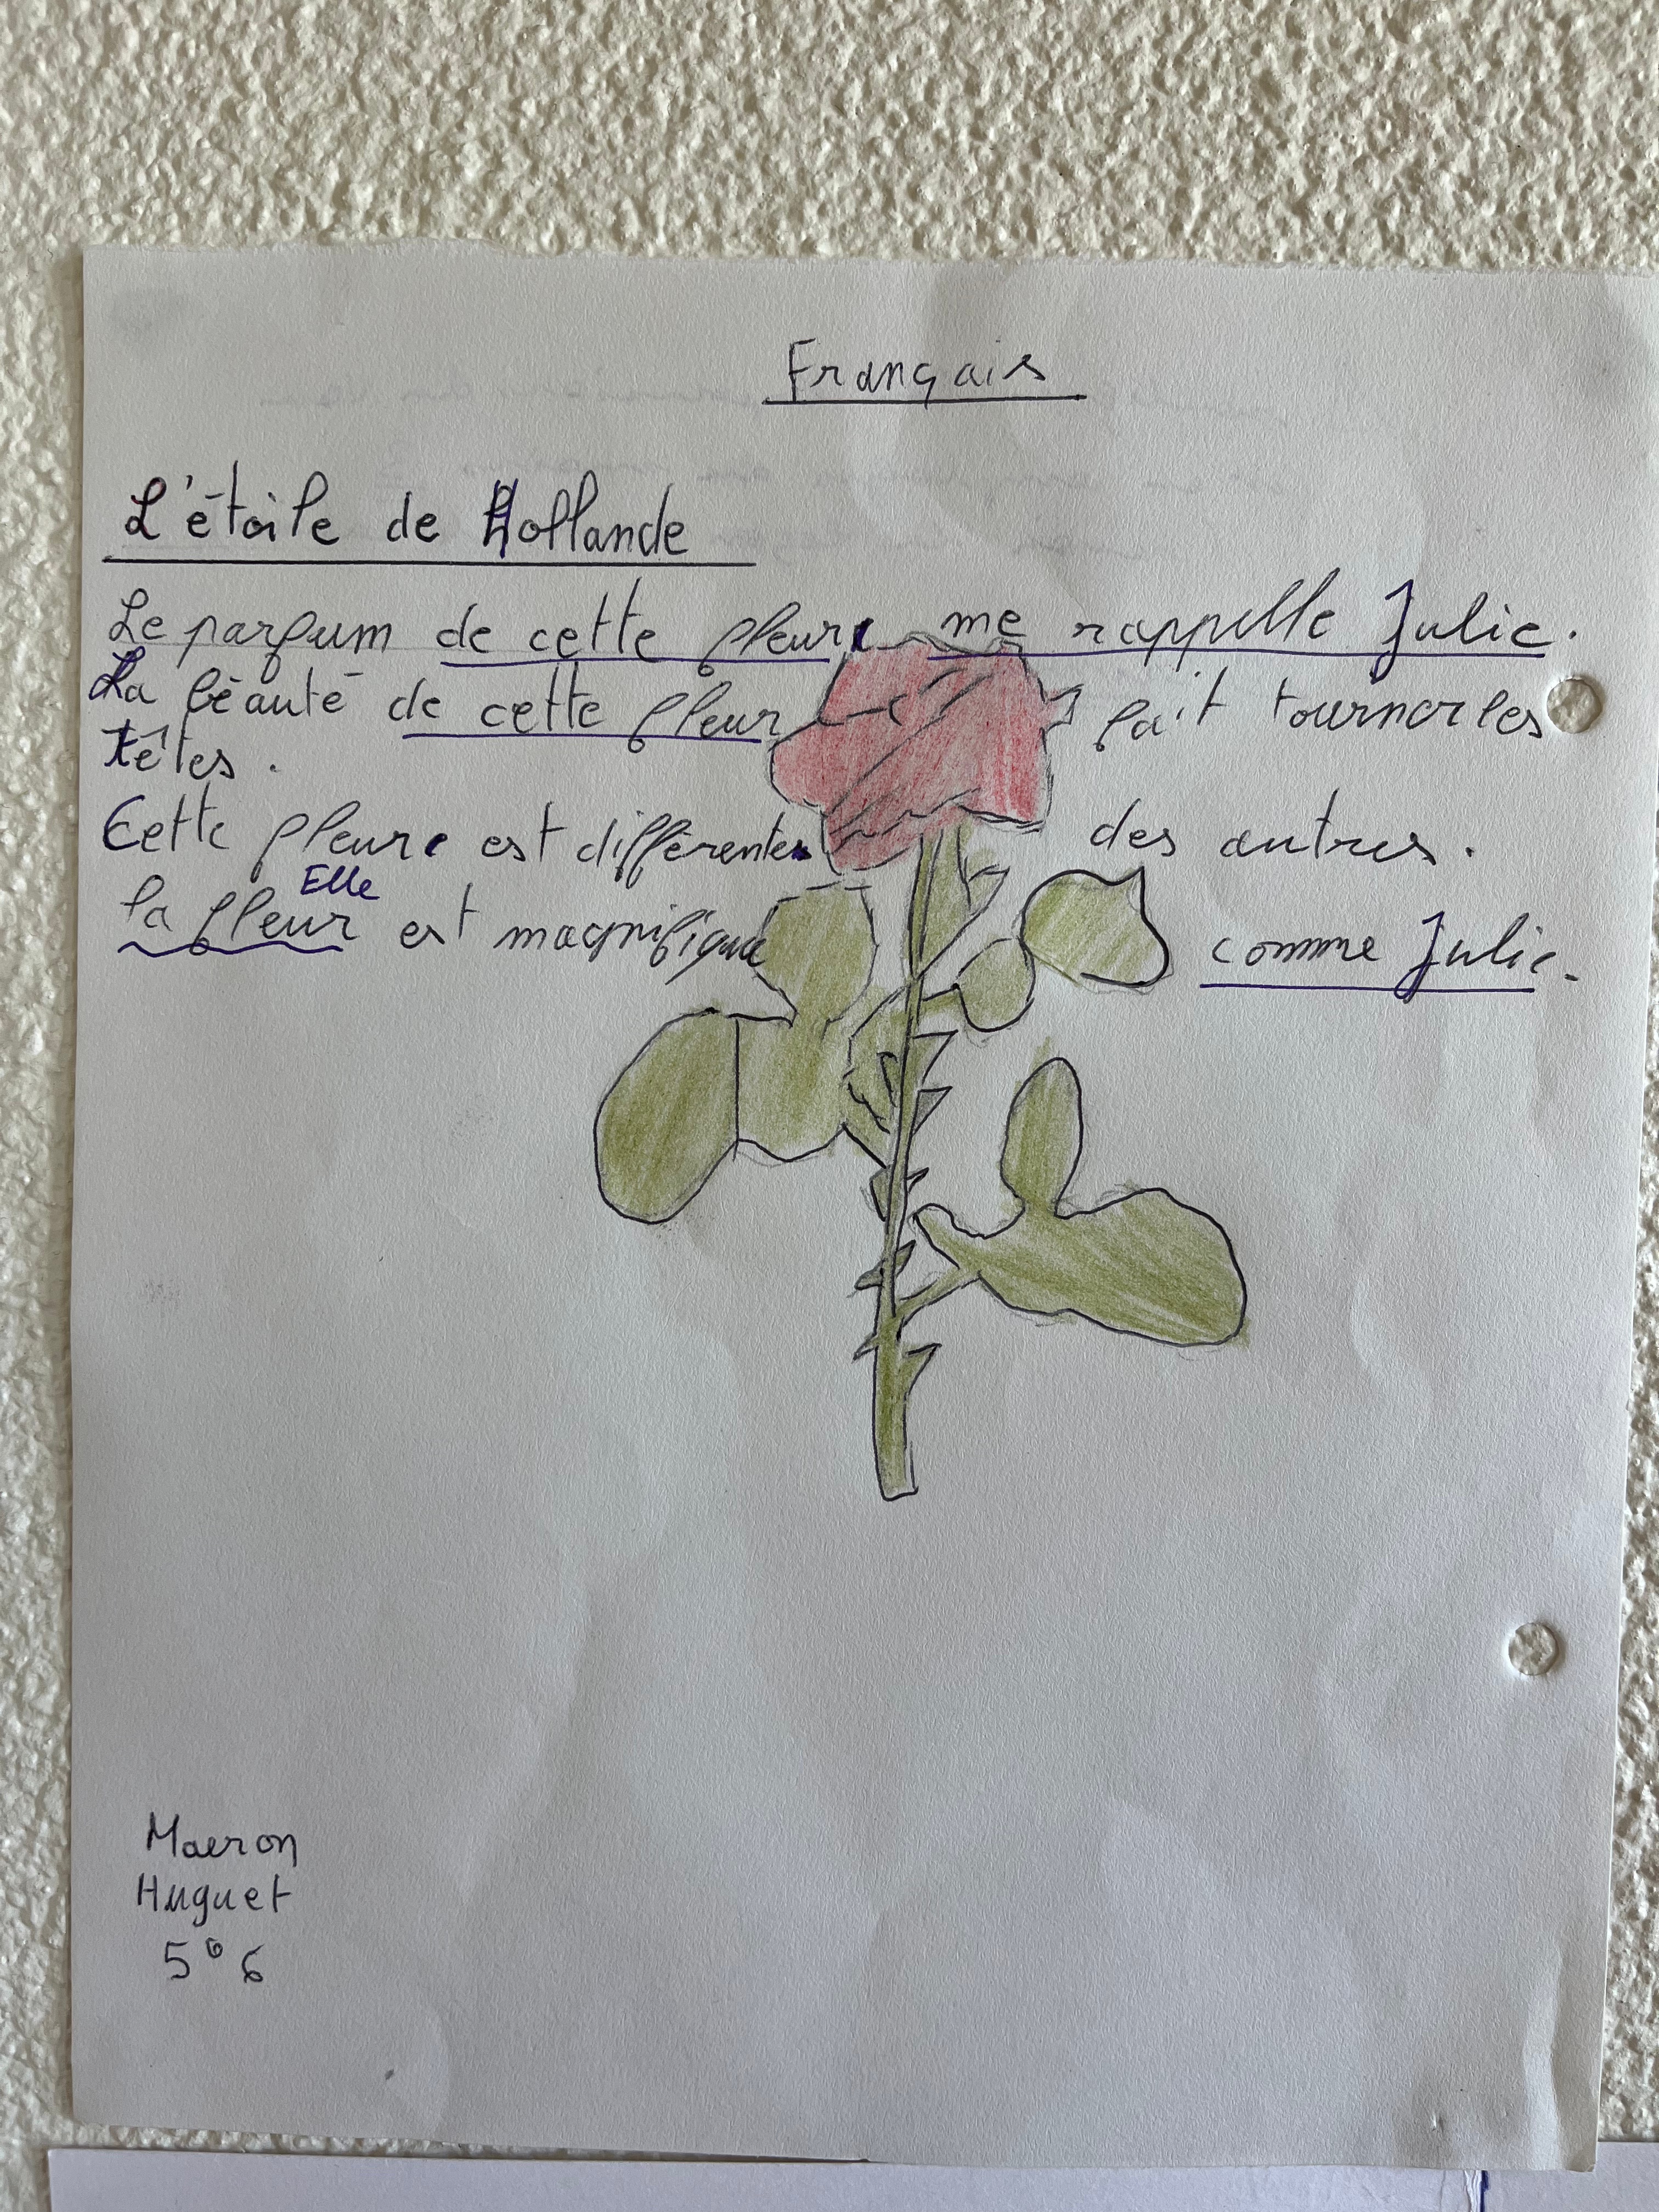 Français
L'étoile de Hollande
Le parfum de cette fleure me rappelle Julie.
La béauté de cette fleur fait tourner les
têtes.
Cette fleure est différentes des autres.
Elle
la fleur est magnifique comme Julie.
Maeron
Huguet
5e 6